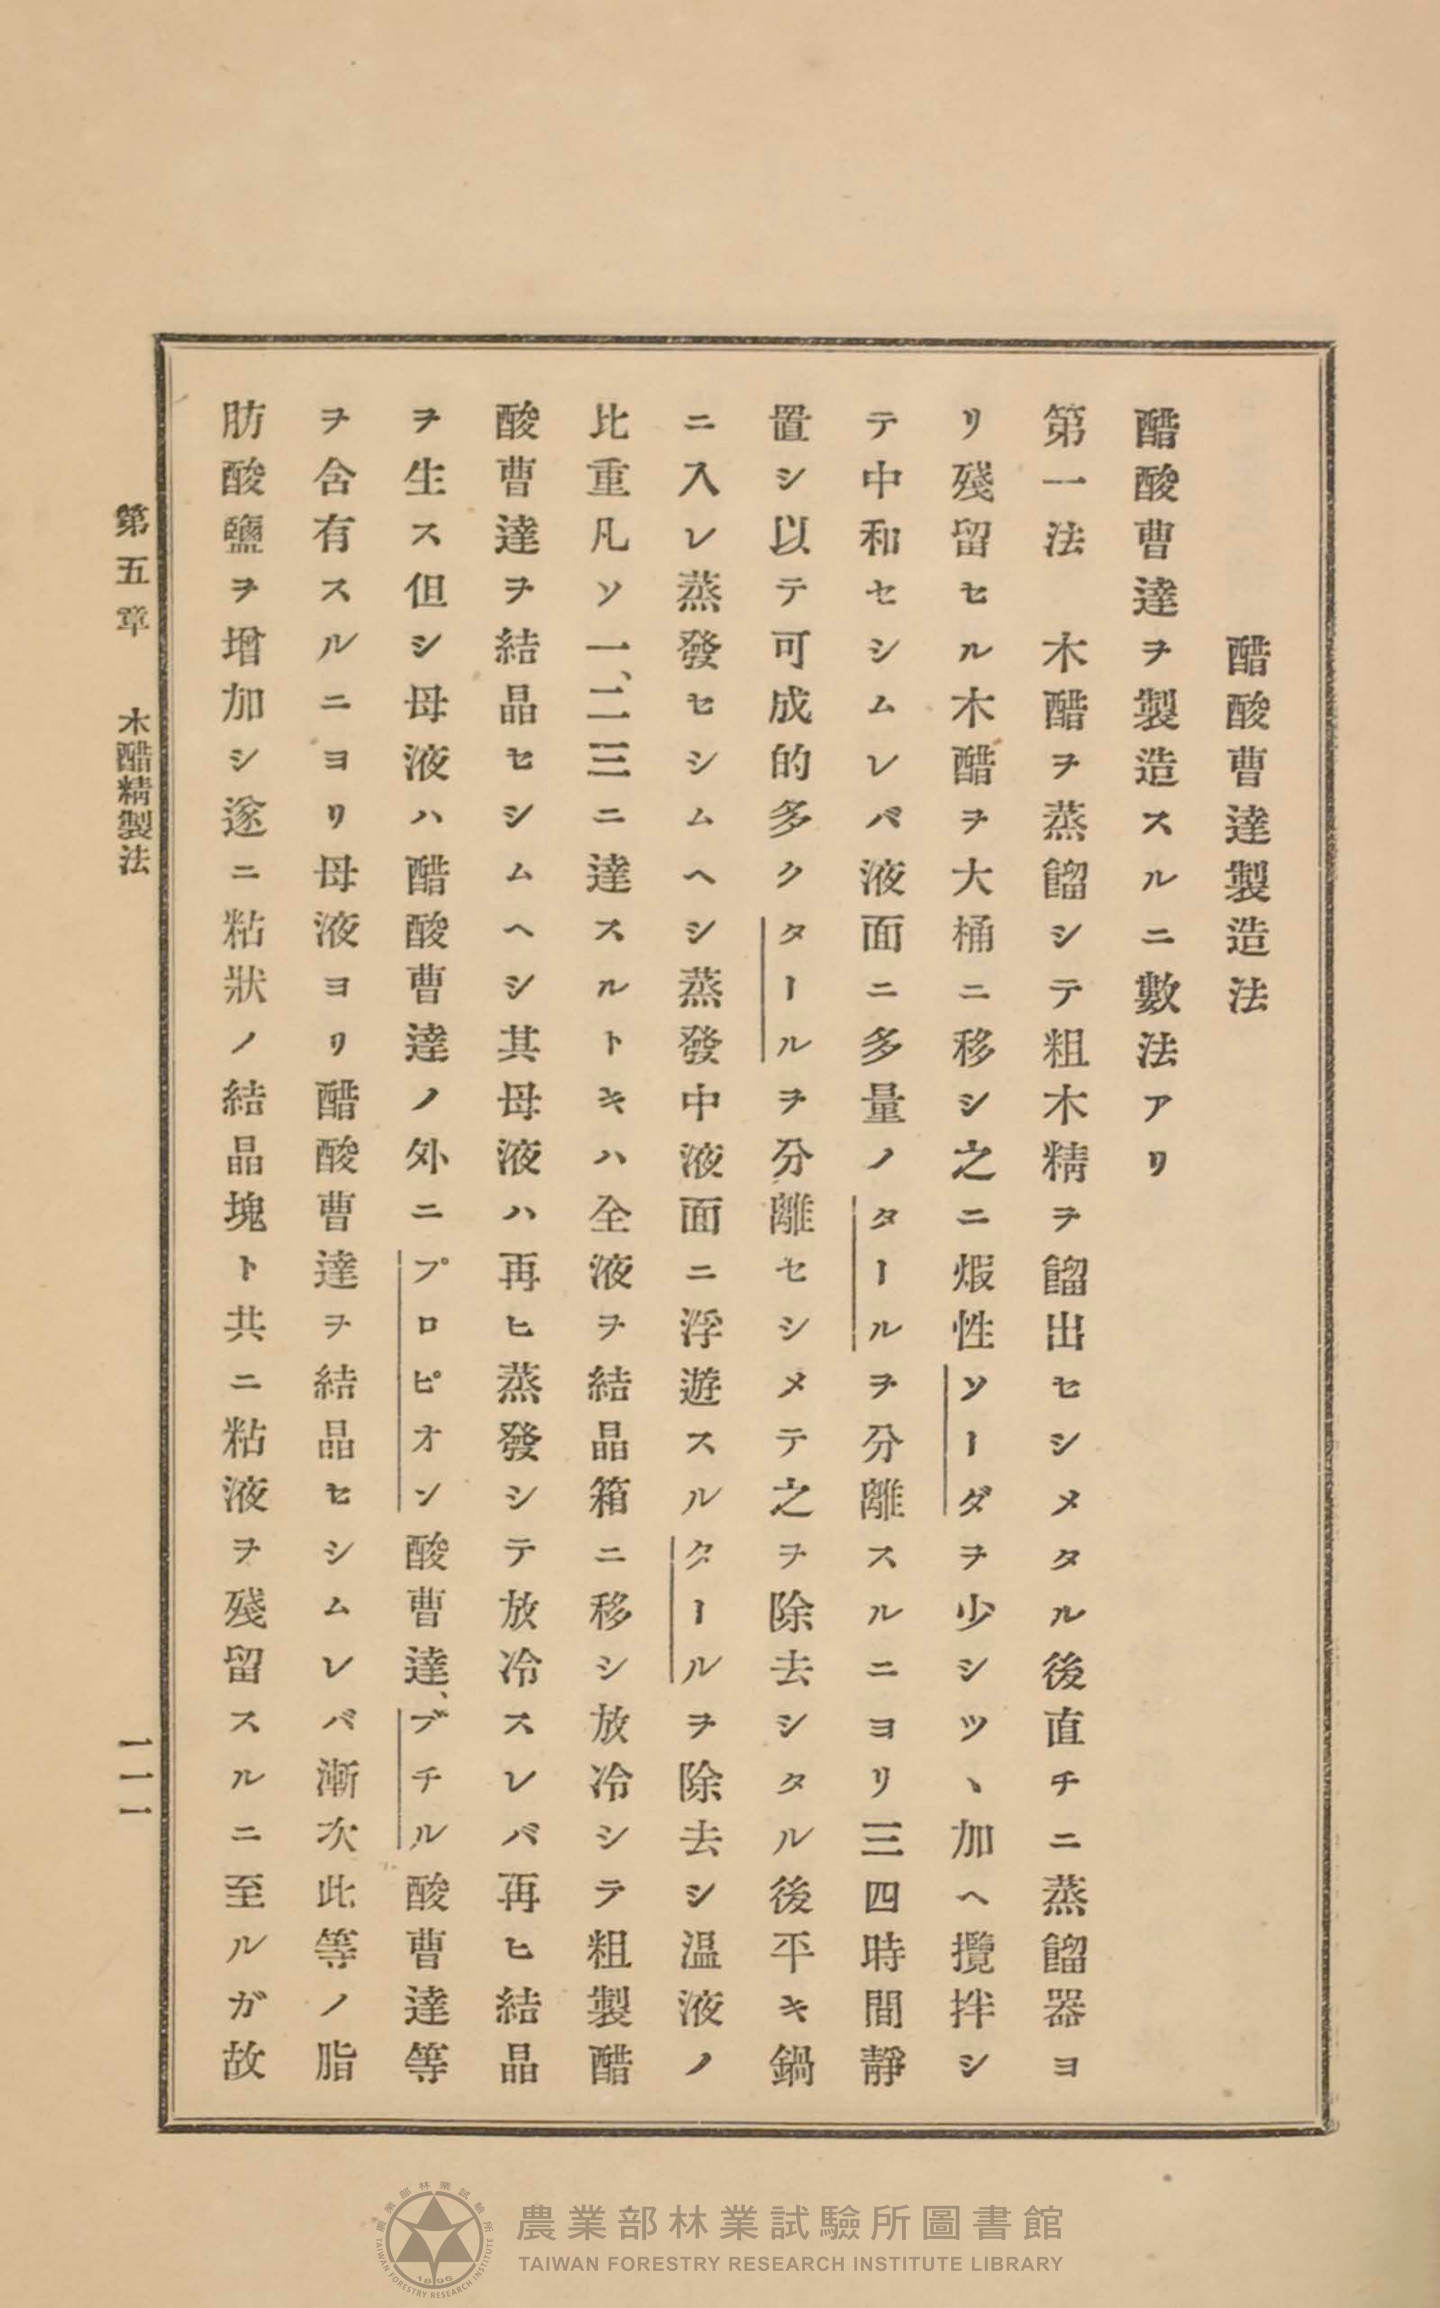 醋酸曹達製造法
醋酸曹達ヲ製造スルニ數法アリ
第一法　木醋ヲ蒸餾シテ粗木精ヲ餾出セシメタル後直チニ蒸餾器ヨ
リ殘留セル木醋ヲ大桶ニ移シ之ニ煆性ソーダヲ少シツヽ加ヘ攪拌シ
テ中和セシムレバ液面ニ多量ノタールヲ分離スルニヨリ三四時間靜
置シ以テ可成的多クタールヲ分離セシメテ之ヲ除去シタル後平キ鍋
ニ入レ蒸發セシムヘシ蒸發中液面ニ浮遊スルタールヲ除去シ温液ノ
比重凡ソ一、二三ニ達スルトキハ全液ヲ結晶箱ニ移シ放冷シテ粗製醋
酸曹達ヲ結晶セシムヘシ其母液ハ再ヒ蒸發シテ放冷スレバ再ヒ結晶
ヲ生ス但シ母液ハ醋酸曹達ノ外ニプロピオン酸曹達、ブチル酸曹達等
ヲ含有スルニヨリ母液ヨリ醋酸曹達ヲ結晶セシムレバ漸次此等ノ脂
肪酸鹽ヲ增加シ遂ニ粘狀ノ結晶塊ト共ニ粘液ヲ殘留スルニ至ルガ故
第五章　木醋精製法
一一一
農業部林業試驗所圖書館
TAIWAN FORESTRY RESEARCH INSTITUTE LIBRARY
農業部林業試驗所
TAIWAN FORESTRY RESEARCH INSTITUTE
1896